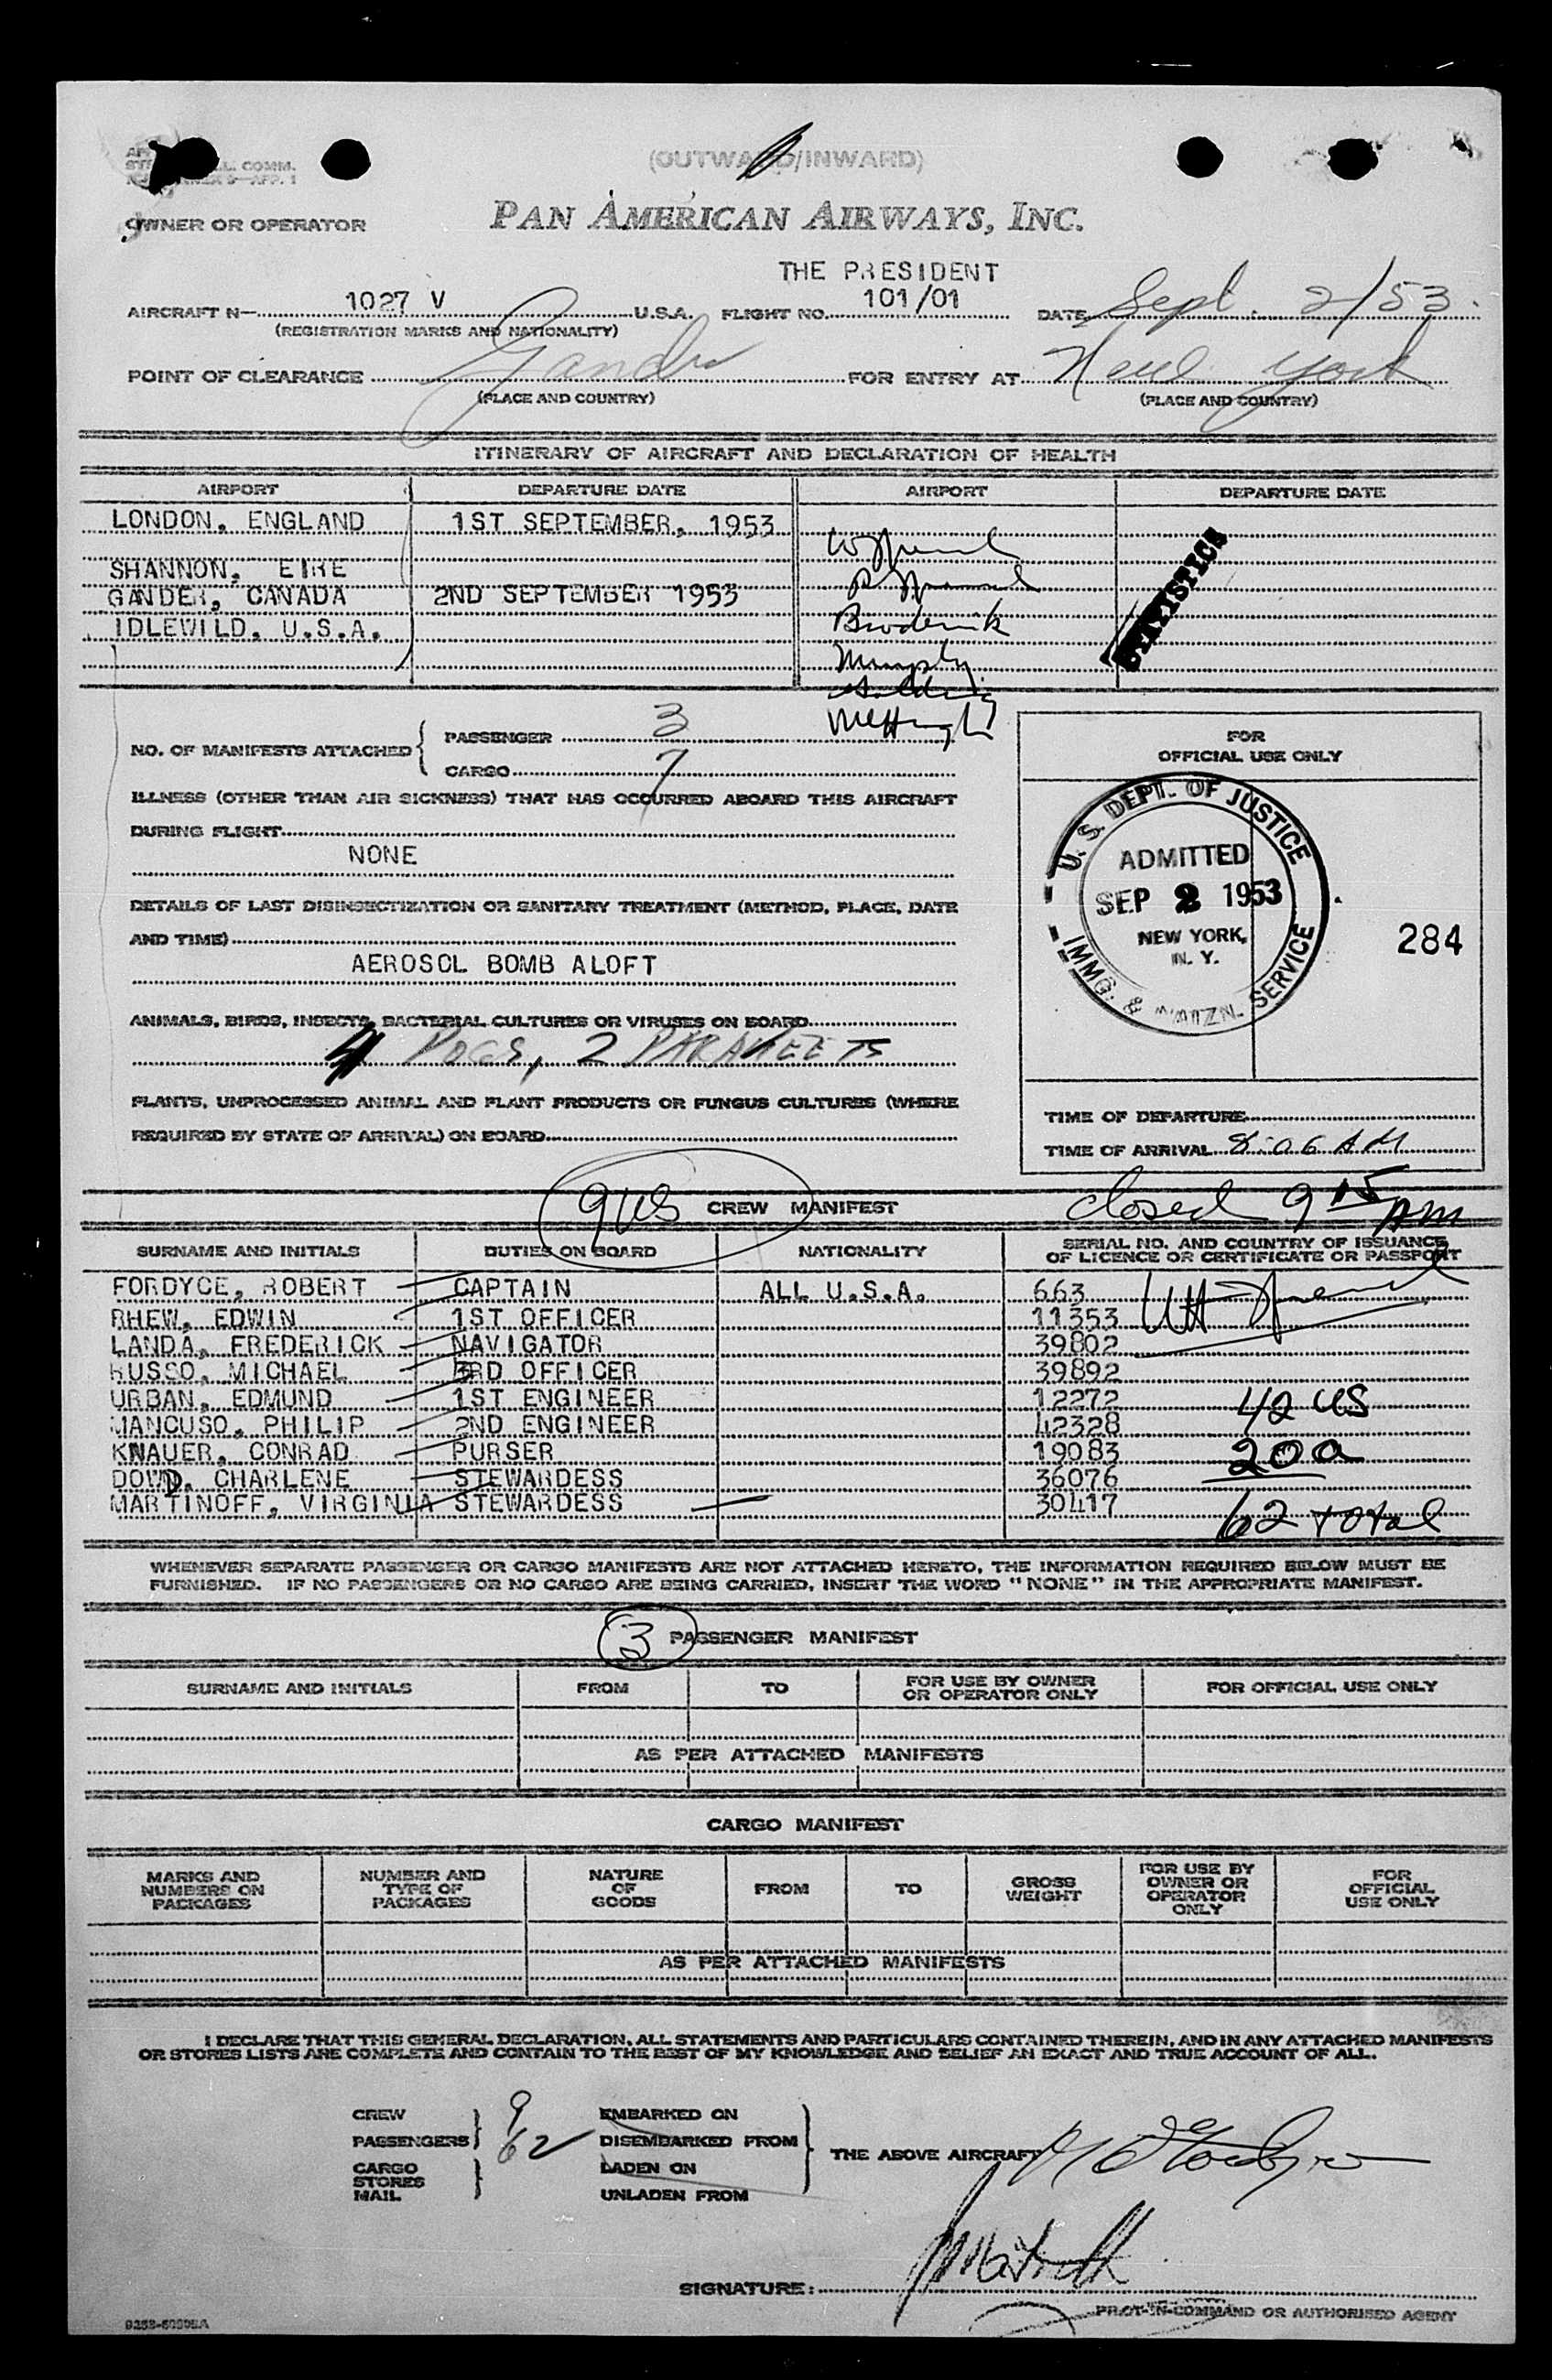 L. COMM.
(OUTWARD/INWARD)
OWNER OR OPERATOR
PAN AMERICAN AIRWAYS, INC.
THE PRESIDENT
AIRCRAFT N- 1027 V U.S.A. FLIGHT NO. 101/01 DATE Sept. 2/53.
(REGISTRATION MARKS AND NATIONALITY)
POINT OF CLEARANCE Gander FOR ENTRY AT New York
(PLACE AND COUNTRY) (PLACE AND COUNTRY)
ITINERARY OF AIRCRAFT AND DECLARATION OF HEALTH
AIRPORT DEPARTURE DATE AIRPORT DEPARTURE DATE
LONDON, ENGLAND 1ST SEPTEMBER, 1953
SHANNON, EIRE
GANDER, CANADA 2ND SEPTEMBER 1953
Broderick
IDLEWILD, U.S.A.
Murphy
STATISTICS
NO. OF MANIFESTS ATTACHED { PASSENGER 3
CARGO 7
ILLNESS (OTHER THAN AIR SICKNESS) THAT HAS OCCURRED ABOARD THIS AIRCRAFT
DURING FLIGHT
NONE
DETAILS OF LAST DISINSECTIZATION OR SANITARY TREATMENT (METHOD, PLACE, DATE
AND TIME)
AEROSOL BOMB ALOFT
ANIMALS, BIRDS, INSECTS, BACTERIAL CULTURES OR VIRUSES ON BOARD
4 DOGS, 2 PARAKEETS
PLANTS, UNPROCESSED ANIMAL AND PLANT PRODUCTS OR FUNGUS CULTURES (WHERE
REQUIRED BY STATE OF ARRIVAL) ON BOARD
FOR
OFFICIAL USE ONLY
U. S. DEPT. OF JUSTICE
ADMITTED
SEP 2 1953
NEW YORK,
N. Y.
IMMG. & NATZN. SERVICE
284
TIME OF DEPARTURE
TIME OF ARRIVAL 8:06 AM
closed 9 15 AM
9 US CREW MANIFEST
SURNAME AND INITIALS DUTIES ON BOARD NATIONALITY SERIAL NO. AND COUNTRY OF ISSUANCE
OF LICENCE OR CERTIFICATE OR PASSPORT
FORDYCE, ROBERT CAPTAIN ALL U.S.A. 663
RHEW, EDWIN 1ST OFFICER 11353
LANDA, FREDERICK NAVIGATOR 39802
RUSSO, MICHAEL 3RD OFFICER 39892
URBAN, EDMUND 1ST ENGINEER 12272 42 US
MANCUSO, PHILIP 2ND ENGINEER 42328
KNAUER, CONRAD PURSER 19083 20 a
DOWD, CHARLENE STEWARDESS 36076
MARTINOFF, VIRGINIA STEWARDESS 30417 62 total
WHENEVER SEPARATE PASSENGER OR CARGO MANIFESTS ARE NOT ATTACHED HERETO, THE INFORMATION REQUIRED BELOW MUST BE
FURNISHED. IF NO PASSENGERS OR NO CARGO ARE BEING CARRIED, INSERT THE WORD "NONE" IN THE APPROPRIATE MANIFEST.
3 PASSENGER MANIFEST
SURNAME AND INITIALS FROM TO FOR USE BY OWNER
OR OPERATOR ONLY FOR OFFICIAL USE ONLY
AS PER ATTACHED MANIFESTS
CARGO MANIFEST
MARKS AND
NUMBERS ON
PACKAGES
NUMBER AND
TYPE OF
PACKAGES
NATURE
OF
GOODS
FROM
TO
GROSS
WEIGHT
FOR USE BY
OWNER OR
OPERATOR
ONLY
FOR
OFFICIAL
USE ONLY
AS PER ATTACHED MANIFESTS
I DECLARE THAT THIS GENERAL DECLARATION, ALL STATEMENTS AND PARTICULARS CONTAINED THEREIN, AND IN ANY ATTACHED MANIFESTS
OR STORES LISTS ARE COMPLETE AND CONTAIN TO THE BEST OF MY KNOWLEDGE AND BELIEF AN EXACT AND TRUE ACCOUNT OF ALL.
CREW 9 EMBARKED ON
PASSENGERS 62 DISEMBARKED FROM
THE ABOVE AIRCRAFT
CARGO LADEN ON
STORES
MAIL UNLADEN FROM
SIGNATURE:
PILOT-IN-COMMAND OR AUTHORISED AGENT